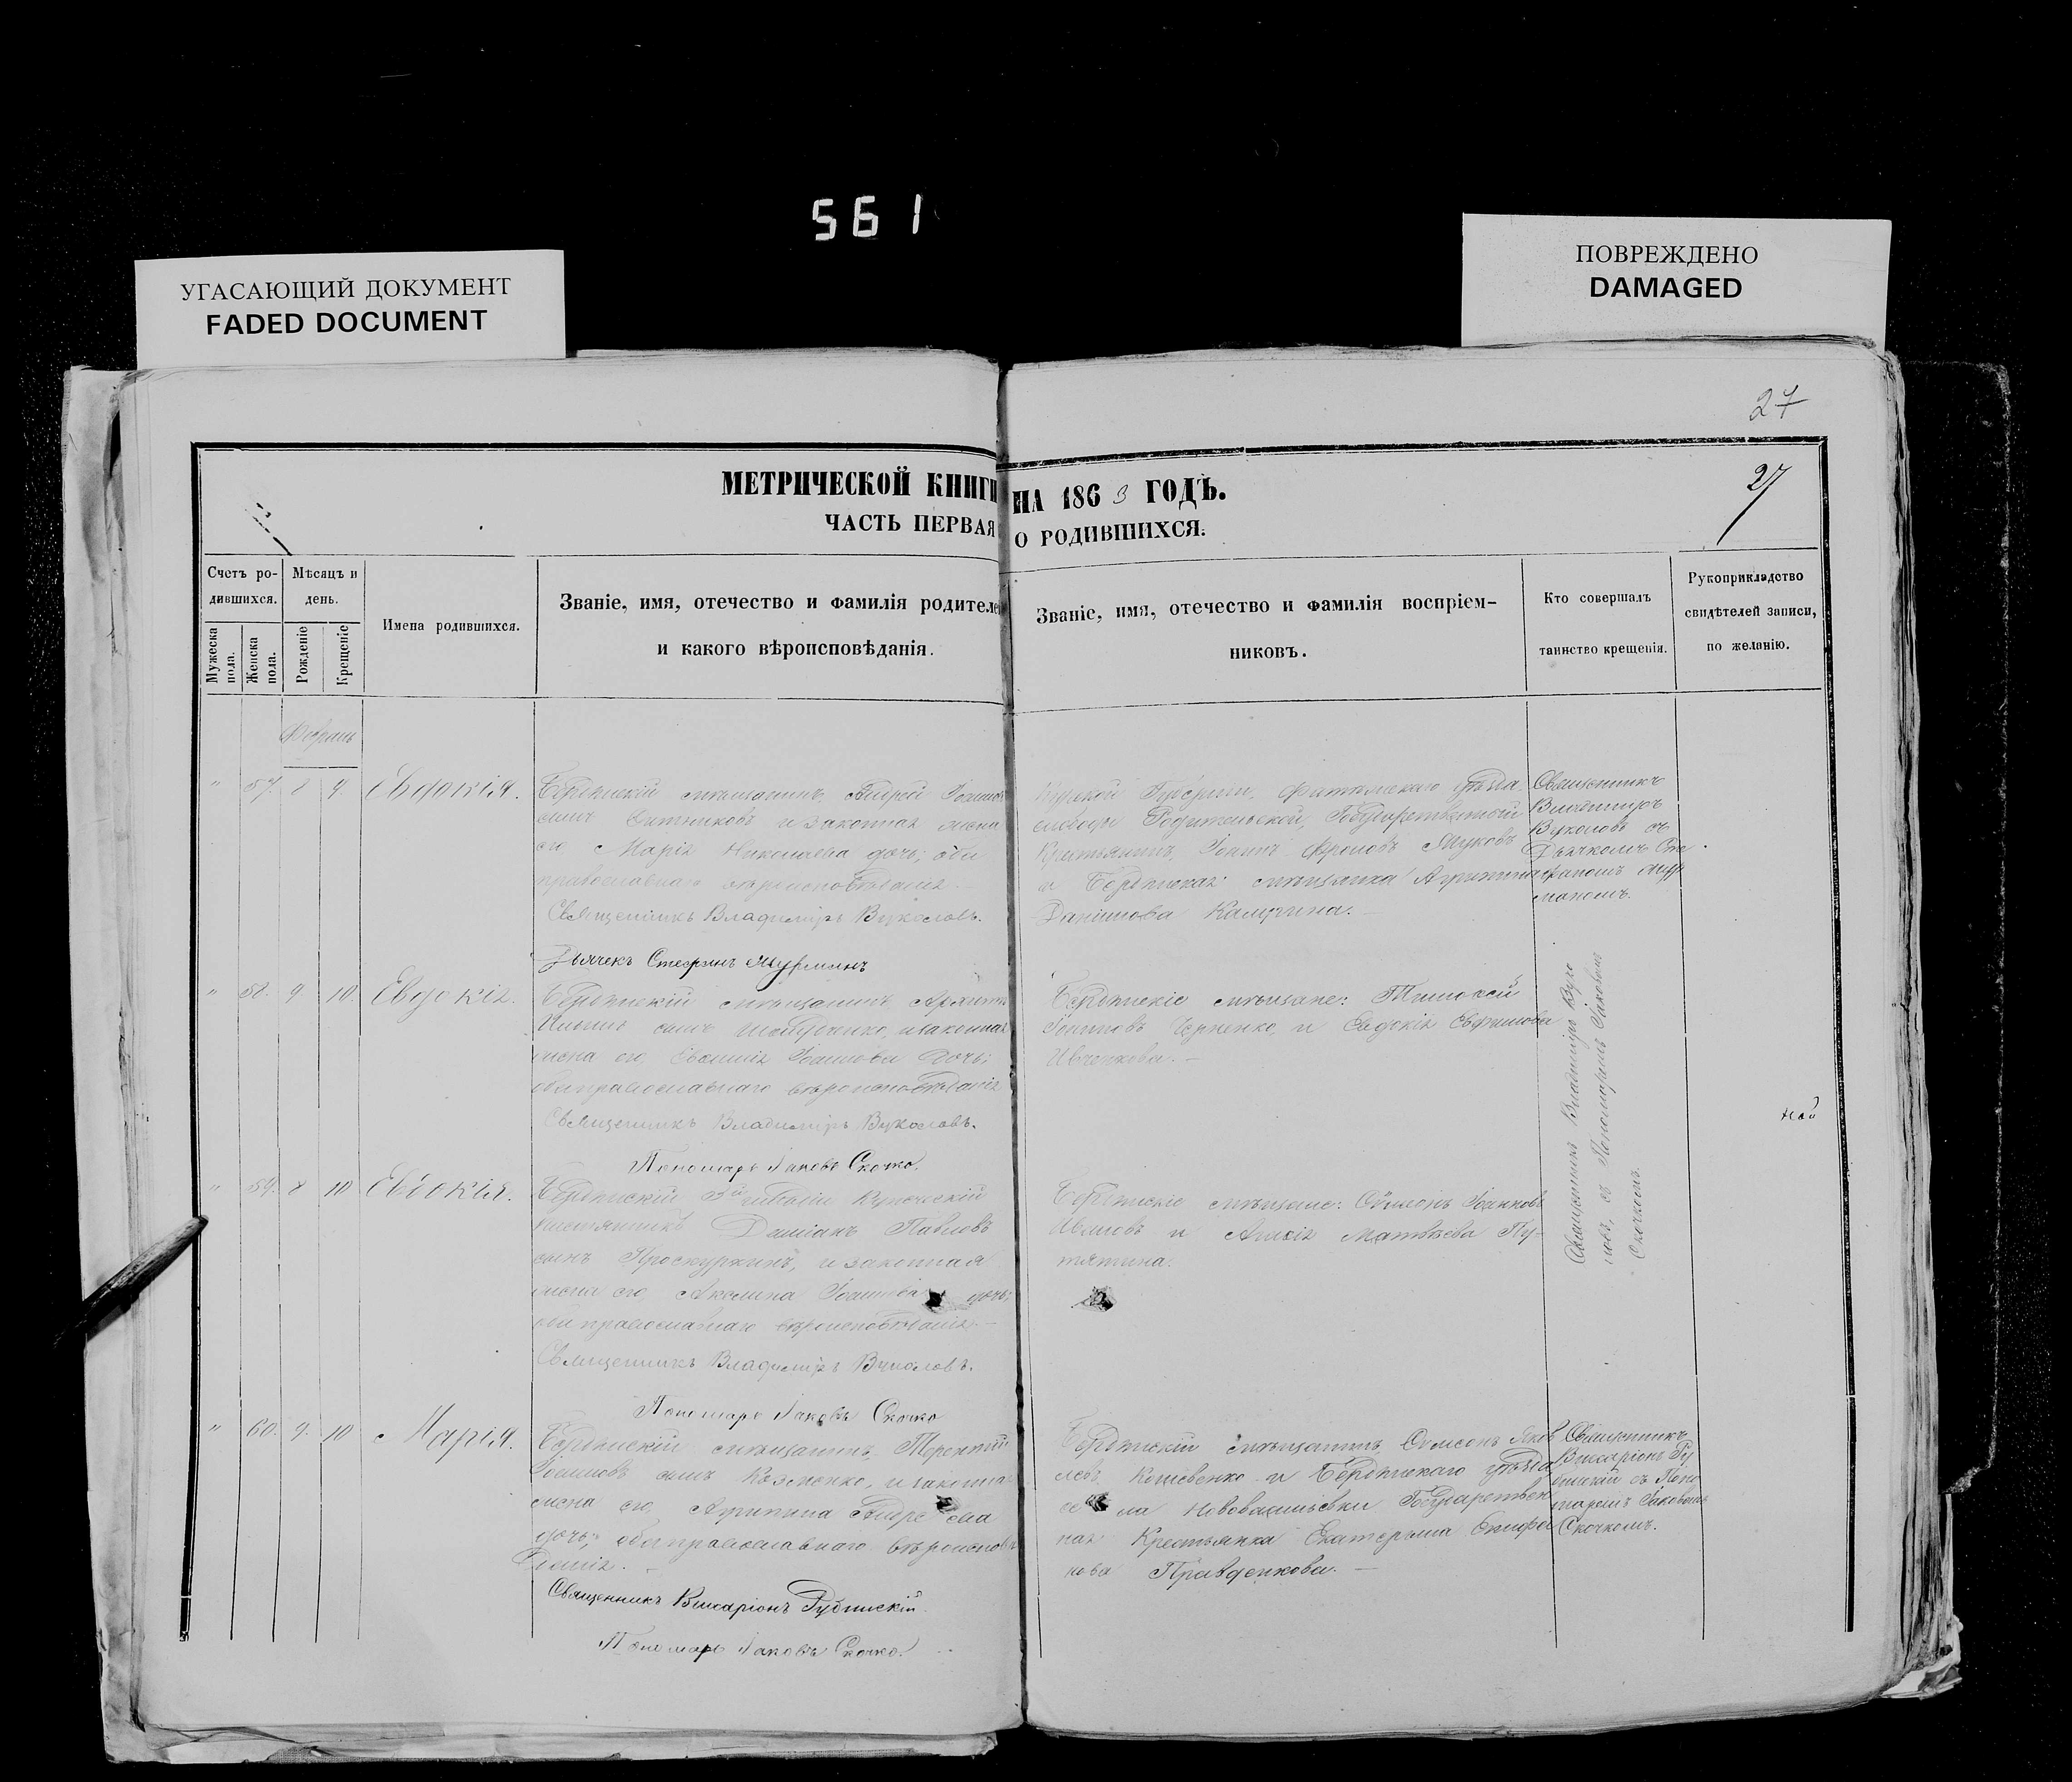 561
УГАСАЮЩИЙ ДОКУМЕНТ
FADED DOCUMENT
ПОВРЕЖДЕНО
DAMAGED
27
27
МЕТРИЧЕСКОЙ КНИГИ НА 1863 ГОДЪ.
ЧАСТЬ ПЕРВАЯ О РОДИВШИХСЯ.
Счетъ ро-
дившихся.
Мужеска пола.
Женска пола.
Мѣсяцъ и
день.
Рожденіе
Крещеніе
Имена родившихся.
Званіе, имя, отечество и фамилія родителе
и какого вѣроисповѣданія.
Званіе, имя, отечество и фамилія воспріем-
никовъ.
Кто совершалъ
таинство крещенія.
Рукоприкладство
свидѣтелей записи,
по желанію.
Февраль
" 57. 8 9 Евдокія.
Бердянскій мѣщанинъ Андрей
сынъ Ситниковъ и законная жена
его Марія Николаева дочь; оба
православнаго вѣроисповѣданія.
Священникъ Владиміръ Вуколовъ.
Дьячекъ Стефанъ Мурманъ
Курской Губерніи, уѣзда
Государственной
Крестьянинъ, Жуковъ
и Бердянская мѣщанка Агрипина
Даніилова
Священникъ
Владиміръ
Вуколовъ съ
Дьячкомъ Сте
фаномъ Мур
маномъ.
" 58. 9 10. Евдокія.
Бердянскій мѣщанинъ
Ильинъ сынъ и законная
жена его, Іоаннова дочь;
оба православнаго вѣроисповѣданія
Священникъ Владиміръ Вуколовъ.
Пономарь Іаковъ Скочко.
Бердянскіе мѣщане: Тимофей
Іоанновъ Черненко и Евдокія Ефимова
Ивченкова.
Священникъ Владиміръ Вуко
ловъ, съ Пономаремъ Іаковомъ
Скочкомъ.
ной
" 59. 8 10 Евдокія.
Бердянскій 3й гильдіи Купеческій
Даміанъ Павловъ
сынъ Проскуркинъ, и законная
жена его Акилина Іоаннова дочь;
оба православнаго вѣроисповѣданія.
Священникъ Владиміръ Вуколовъ.
Пономарь Іаковъ Скочко
Бердянскіе мѣщане: Сумеонъ Іоанновъ
и Матвѣева Пу-
тятина.
" 60. 9. 10 Марія.
Бердянскій мѣщанинъ, Терентій
Іосифовъ сынъ Козменко, и законная
жена его, Агрипина Андреева
дочь; оба православнаго вѣроиспов
данія.
Священникъ Виссаріонъ Рубинскій
Пономарь Іаковъ Скочко.
Бердянскій мѣщанинъ, Симеонъ Яков
левъ Кошевенко и Бердянскаго уѣзда
села Нововасильевки Государствен
ная Крестьянка Екатерина Епифа
нова Правденкова.
Священникъ
Виссаріонъ Ру
бинскій съ Поно
маремъ Іаковомъ
Скочкомъ.